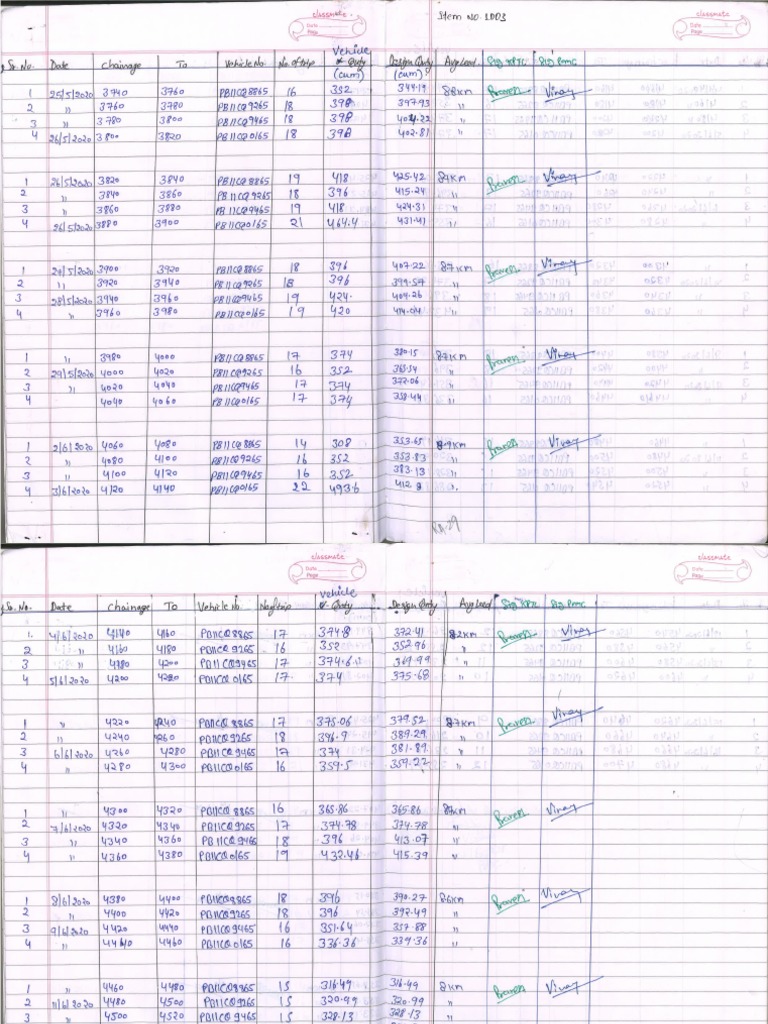 classmate
Date
Page
Item No. 1.003
classmate
Date
Page
Sr. No. Date Chainage To Vehicle No No. of trip Vehicle Qnty (cum) Design Qnty (cum) Avg Lead.
1 25/5/2020 3740 3760 PB11CQ8865 16 352 344.19 88km Praveen Vinay
2 " 3760 3780 PB11CQ9265 18 398 397.93 "
3 " 3780 3800 PB11CQ9465 18 398 404.22 "
4 26/5/2020 3800 3820 PB11CQ0165 18 398 402.81 "
1 26/5/2020 3820 3840 PB11CQ8865 19 418 425.42 87km Praveen Vinay
2 " 3840 3860 PB11CQ9265 18 396 415.24 "
3 " 3860 3880 PB11CQ9465 19 418 424.31 "
4 26/5/2020 3880 3900 PB11CQ0165 21 464.4 431.41 "
1 3900 3920 PB11CQ8865 18 396 407.22 87km Praveen Vinay
2 " 3920 3940 PB11CQ9265 18 396 399.57 "
3 28/5/2020 3940 3960 PB11CQ9465 19 424. 409.26 "
4 " 3960 3980 PB11CQ0165 19 420 414.04 "
1 " 3980 4000 PB11CQ8865 17 374 380.15 87km Praveen Vinay
2 29/5/2020 4000 4020 PB11CQ9265 16 352 "
3 " 4020 4040 PB11CQ9465 17 374 "
4 4040 4060 PB11CQ0165 17 374 358.44 "
1 2/6/2020 4060 4080 PB11CQ8865 14 308 353.65 Praveen Vinay
2 " 4080 4100 PB11CQ9265 16 352 353.83 "
3 " 4100 4120 PB11CQ9465 16 352 383.13 "
4 3/6/2020 4120 4140 PB11CQ0165 22 493.6
classmate
Date
Page
classmate
Date
Page
Sr. No. Date Chainage To Vehicle No. No of trip Vehicle Qnty Design Qnty Avg Lead
1. 4/6/2020 4140 4160 PB11CQ8865 17 374.8 372.41 82km Praveen Vinay
2 " 4160 4180 PB11CQ9265 16 352 352.96 "
3 " 4180 4200 PB11CQ9465 17 374.6 369.99 "
4 5/6/2020 4200 4220 PB11CQ0165 17. 374 375.68 "
1 " 4220 4240 PB11CQ8865 17 375.06 379.52 87km Praveen Vinay
2 " 4240 4260 PB11CQ9265 18 396.9 389.29 "
3 6/6/2020 4260 4280 PB11CQ9465 17 374 381.89 "
4 " 4280 4300 PB11CQ0165 16 359.5 359.22 "
1 " 4300 4320 PB11CQ8865 16 365.86 365.86 87km Praveen Vinay
2 7/6/2020 4320 4340 PB11CQ9265 17 374.78 374.78 "
3 " 4340 4360 PB11CQ9465 18 396 413.07 "
4 " 4360 4380 PB11CQ0165 19 432.46 415.39 "
1 8/6/2020 4380 4400 PB11CQ8865 18 396 390.27 86km Praveen Vinay
2 " 4400 4420 PB11CQ9265 18 396 392.49 "
3 9/6/2020 4420 4440 PB11CQ9465 16 351.64 357.88 "
4 " 4440 4460 PB11CQ0165 16 336.36 339.36 "
1 " 4460 4480 PB11CQ8865 15 316.49 316.49 Praveen Vinay
2 11/6/2020 4480 4500 PB11CQ9265 15 320.99 320.99 "
3 " 4500 4520 PB11CQ9465 15 328.13 328.13 "